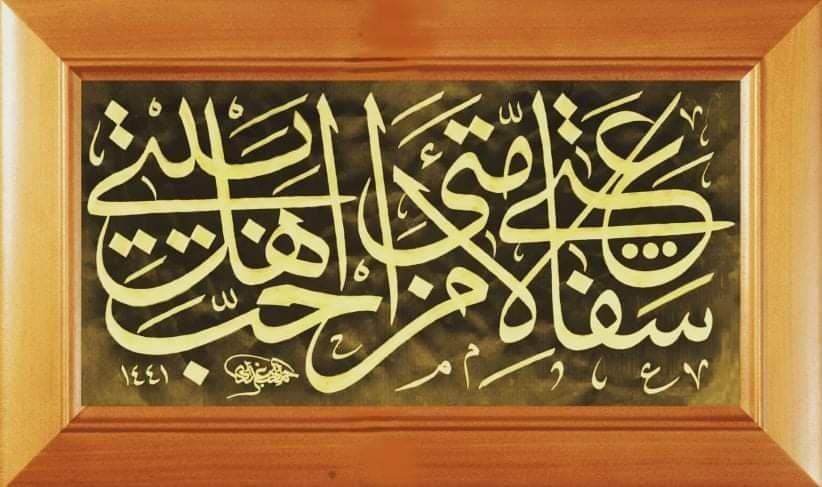 شفاعتي لأمّتي من أحبّ اهل بيتي
١٤٤١